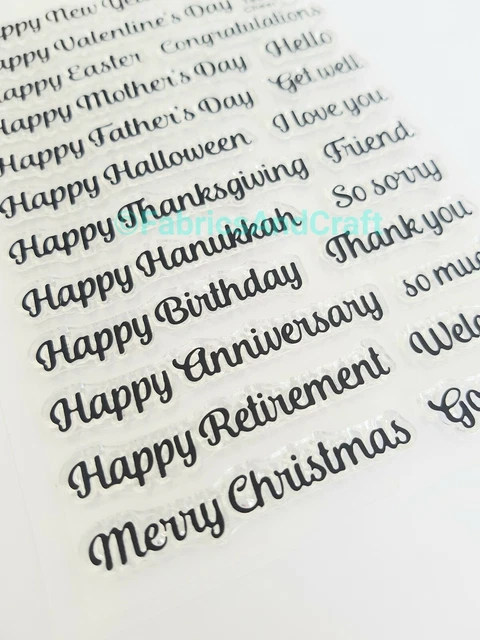 Happy New Year
Happy Valentine's Day
Happy Easter Congratulations
Happy Mother's Day Hello
Happy Father's Day Get well
Happy Halloween I love you
Happy Thanksgiving Friend
Happy Hanukkah So sorry
Happy Birthday Thank you
Happy Anniversary so
Happy Retirement
Merry Christmas
©FabricsAndCraft